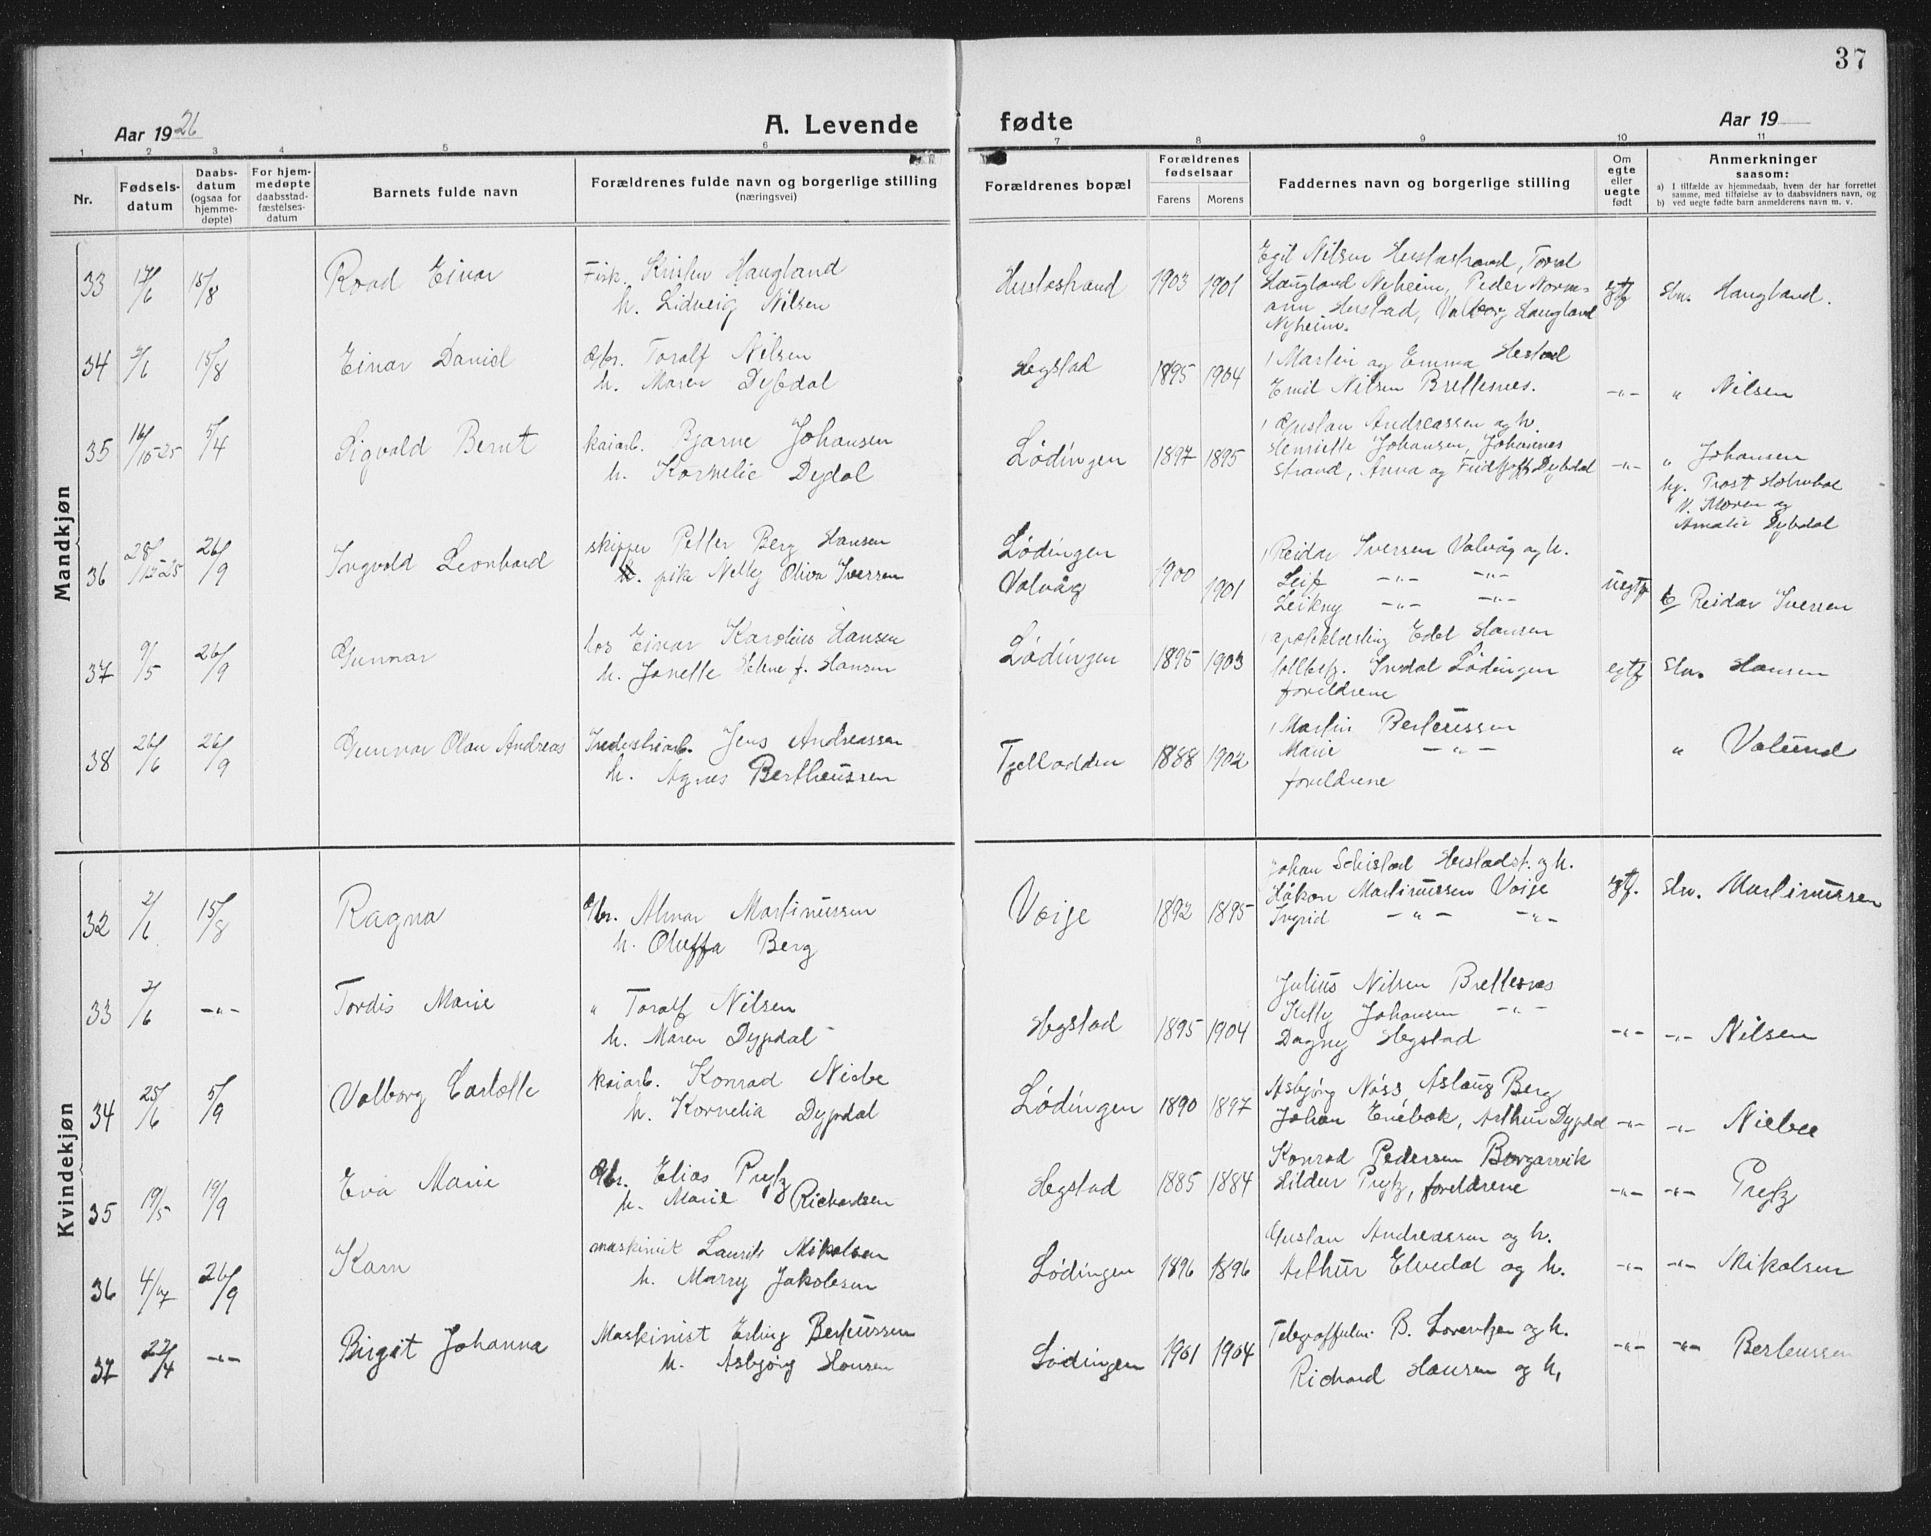 37
Aar 1926
A. Levende fødte
Aar 19
1 2 3 4 5 6 7 8 9 10 11
Nr.
Fødsels-
datum
Daabs-
datum
(ogsaa for
hjemme-
døpte)
For hjem-
medøpte
daabsstad-
fæstelses-
datum
Barnets fulde navn
Forældrenes fulde navn og borgerlige stilling
(næringsvei)
Forældrenes bopæl
Forældrenes
fødselsaar
Farens Morens
Faddernes navn og borgerlige stilling
Om
egte
eller
uegte
født
Anmerkninger
saasom:
a) I tilfælde av hjemmedaab, hvem der har forrettet
samme, med tilføielse av to daabsvidners navn, og
b) ved uegte fødte barn anmelderens navn m. v.
Mandkjøn
33 17/6 15/8 Road Einar
Fisk. Kristen Haugland
h. Lidveig Nilsen
Herstostrand 1903 1901
Egil Nilsen Herstostrand, Toral
Haugland Nyheim, Peder Norm=
ann Herstad, Valborg Haugland
Nyheim.
egtf Stn. Haugland.
34 2/6 15/8 Einar Daniel
Gbr. Toralf Nilsen
h. Maren Dybdal
Hegstad 1895 1904
Martin og Emma Hestad
Emil Nilsen Brettesnes.
-"- " Nilsen
35 16/10-25 5/4 Sigvald Bernt
kaiarb. Bjarne Johansen
h. Kornelie Dydal
Lødingen 1897 1895
Gustav Andreassen og h.
Henriette Johansen, Johannes
Strand, Anna og Fridtjoft Dybdal
-"- " Johansen
hj. Trost
V. Maren og
Amalie Dybdal
36 28/12-25 26/9 Ingvald Leonhard
skipper Petter Berg Hansen
pike Nelly Oliva Iversen
Lødingen
Valvåg
1900 1901
Reidar Iversen Valvåg og h.
Leif -"- -"-
Leikny -"- -"-
uegtf b/ Reidar Iversen
37 9/5 26/9 Gunnar
los Einar Karelius Hansen
h. Janette Helene f. Hansen
Lødingen 1895 1903
Edel Hansen
Lødingen
foreldrene
egtf Stn. Hansen
38 26/6 26/9 Gunnar Olau Andreas
Industriarb. Jens Andreassen
h. Agnes Bertheussen
Tjellodden 1888 1902
Martin Berteussen
Marie -"-
foreldrene
" Valund
Kvindekjøn
32 2/6 15/8 Ragna
Gbr. Almar Martinussen
h. Oluffa Berg
Voije 1892 1895
Johan Schistad Herstadst. og h.
Håkon Martinussen Voije
Ingrid -"- -"-
egtf. Stn. Martinussen
33 2/6 -"- Tordis Marie
" Toralf Nilsen
h. Maren Dypdal
Hegstad 1895 1904
Julius Nilsen Brettesnes
Kitty Johansen -"-
Dagny Hegstad
-"- -"- Nilsen
34 25/6 5/9 Valborg Carlotte
kaiarb. Konrad Niebe
h. Kornelia Dypdal
Lødingen 1890 1897
Asbjørg Noss Aslaug Berg
Johan Enebak, Arthur Dypdal
-"- -"- Niebee
35 19/5 19/9 Eva Marie
Gbr. Elias Prytz
h. Marie Richardsen
Hegstad 1885 1884
Konrad Pedersen Borgarvik
Hildur Prytz, foreldrene
-"- -"- Prytz
36 4/7 26/9 Karn
maskinist Laurits Mikalsen
h. Marry Jakobsen
Lødingen 1896 1896
Gustav Andreassen og h.
Arthur Elvedal og h.
-"- -"- Mikalsen
37 22/4 -"- Birgit Johanna
Maskinist Erling Berteussen
h. Asbjørg Hansen
Lødingen 1901 1904
B. Lorentzen og h.
Richard Hansen og h.
-"- -"- Berteussen